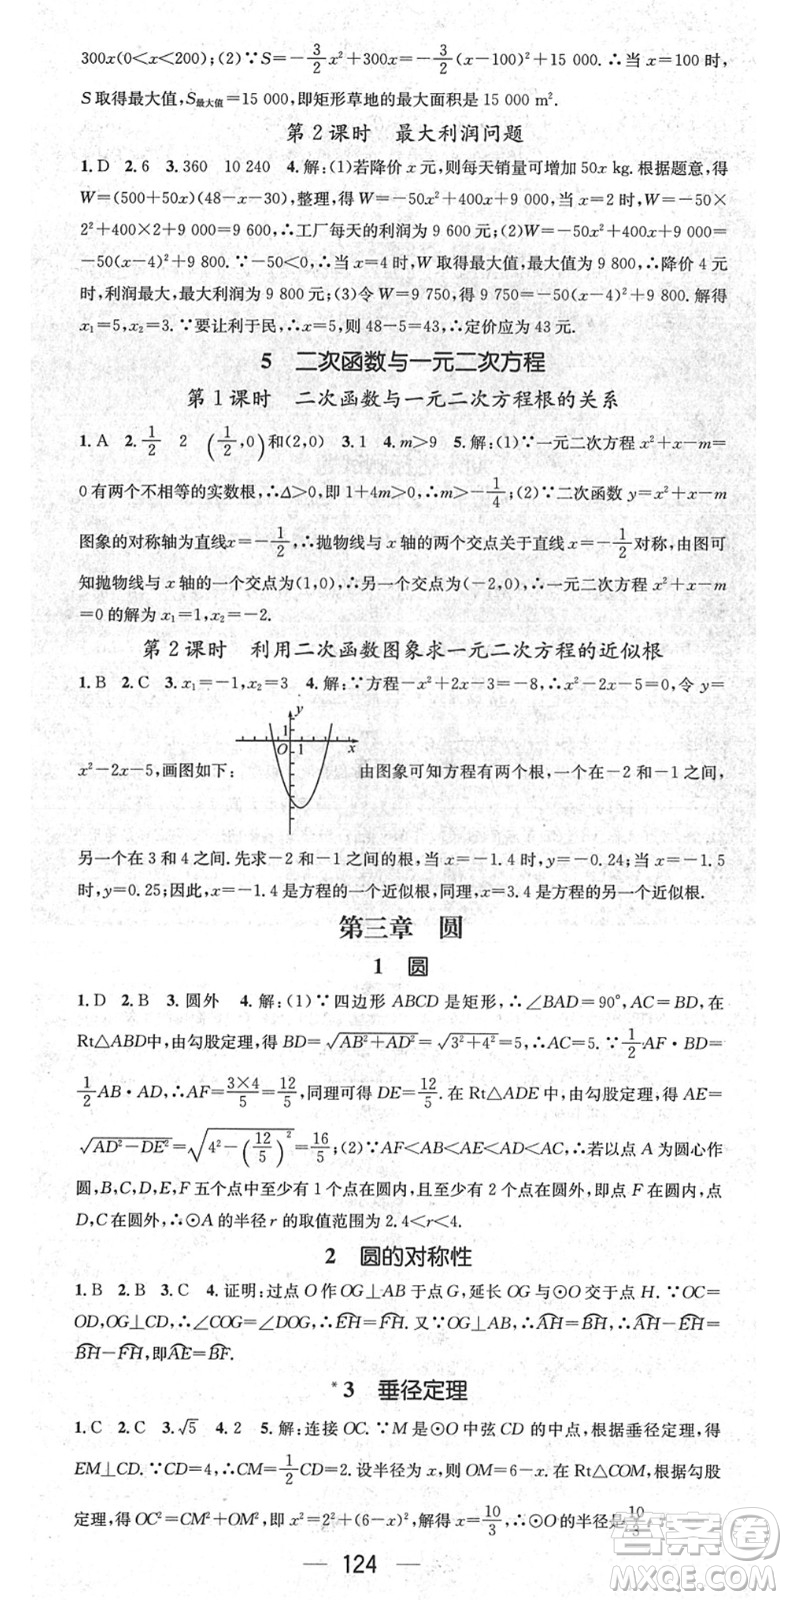 300x(0<x<200);(2)∵S=-3/2x²+300x=-3/2(x-100)²+15 000.当 x=100 时,
S 取得最大值,S最大值=15 000,即矩形草地的最大面积是 15 000 m².
第 2 课时 最大利润问题
1.D 2.6 3.360 10 240 4.解:(1)若降价 x 元,则每天销量可增加 50x kg.根据题意,得
W=(500+50x)(48-x-30),整理,得 W=-50x²+400x+9 000,当 x=2 时,W=-50×
2²+400×2+9 000=9 600,∴工厂每天的利润为 9 600 元;(2)W=-50x²+400x+9 000=
-50(x-4)²+9 800.∵当 x=4 时,W 取得最大值,最大值为 9 800,∴降价 4 元
时,利润最大,最大利润为 9 800 元;(3)令 W=9 750,得 9 750=-50(x-4)²+9 800.解得
x₁=5,x₂=3.∵要让利于民,∴x=5,则 48-5=43,∴定价应为 43 元.
5 二次函数与一元二次方程
第 1 课时 二次函数与一元二次方程根的关系
1.A 2.1/2 2 (1/2,0)和(2,0) 3.1 4.m>9 5.解:(1)∵一元二次方程 x²+x-m=
0 有两个不相等的实数根,∴Δ>0,即 1+4m>0,∴m>-1/4;(2)∵二次函数 y=x²+x-m
图象的对称轴为直线x=-1/2,∴抛物线与 x 轴的两个交点关于直线 x=-1/2对称,由图可
知抛物线与 x 轴的一个交点为(1,0),∴另一个交点为(-2,0),∴一元二次方程 x²+x-m
=0 的解为 x₁=1,x₂=-2.
第 2 课时 利用二次函数图象求一元二次方程的近似根
1.B 2.C 3.x₁=-1,x₂=3 4.解:∵方程-x²+2x-3=-8,∴x²-2x-5=0,令 y=
y
1
O 1 x
x²-2x-5,画图如下: 由图象可知方程有两个根,一个在-2 和-1 之间,
另一个在 3 和 4 之间.先求-2 和-1 之间的根,当 x=-1.4 时,y=-0.24;当 x=-1.5
时,y=0.25;因此,x=-1.4 是方程的一个近似根,同理,x=3.4 是方程的另一个近似根.
第三章 圆
1 圆
1.D 2.B 3.圆外 4.解:(1)∵四边形 ABCD 是矩形,∴∠BAD=90°,AC=BD,在
Rt△ABD中,由勾股定理,得 BD=√(AB²+AD²)=√(3²+4²)=5,∴AC=5.∵1/2AF·BD=
1/2AB·AD,∴AF=3×4/5=12/5,同理可得 DE=12/5.在 Rt△ADE 中,由勾股定理,得 AE=
√(AD²-DE²)=√(4²-(12/5)²)=16/5;(2)∵AF<AB<AE<AD<AC,∴若以点 A 为圆心作
圆,B,C,D,E,F 五个点中至少有 1 个点在圆内,且至少有 2 个点在圆外,即点 F 在圆内,点
D,C 在圆外,∴⊙A 的半径 r 的取值范围为 2.4<r<4.
2 圆的对称性
1.B 2.B 3.C 4.证明:过点 O 作 OG⊥AB 于点 G,延长 OG 与⊙O 交于点 H.∵OC=
OD,OG⊥CD,∴∠COG=∠DOG,∴E͡H=F͡H.又∵OG⊥AB,∴A͡H=B͡H,∴A͡H-E͡H=
B͡H-F͡H,即A͡E=B͡F.
*3 垂径定理
1.C 2.C 3.√5 4.2 5.解:连接 OC.∵M 是⊙O 中弦 CD 的中点,根据垂径定理,得
EM⊥CD.∵CD=4,∴CM=1/2CD=2.设半径为 x,则 OM=6-x.在 Rt△COM,根据勾股
定理,得 OC²=CM²+OM²,即 x²=2²+(6-x)²,解得 x=10/3,∴⊙O 的半径是10/3.
— 124 —
答案圈